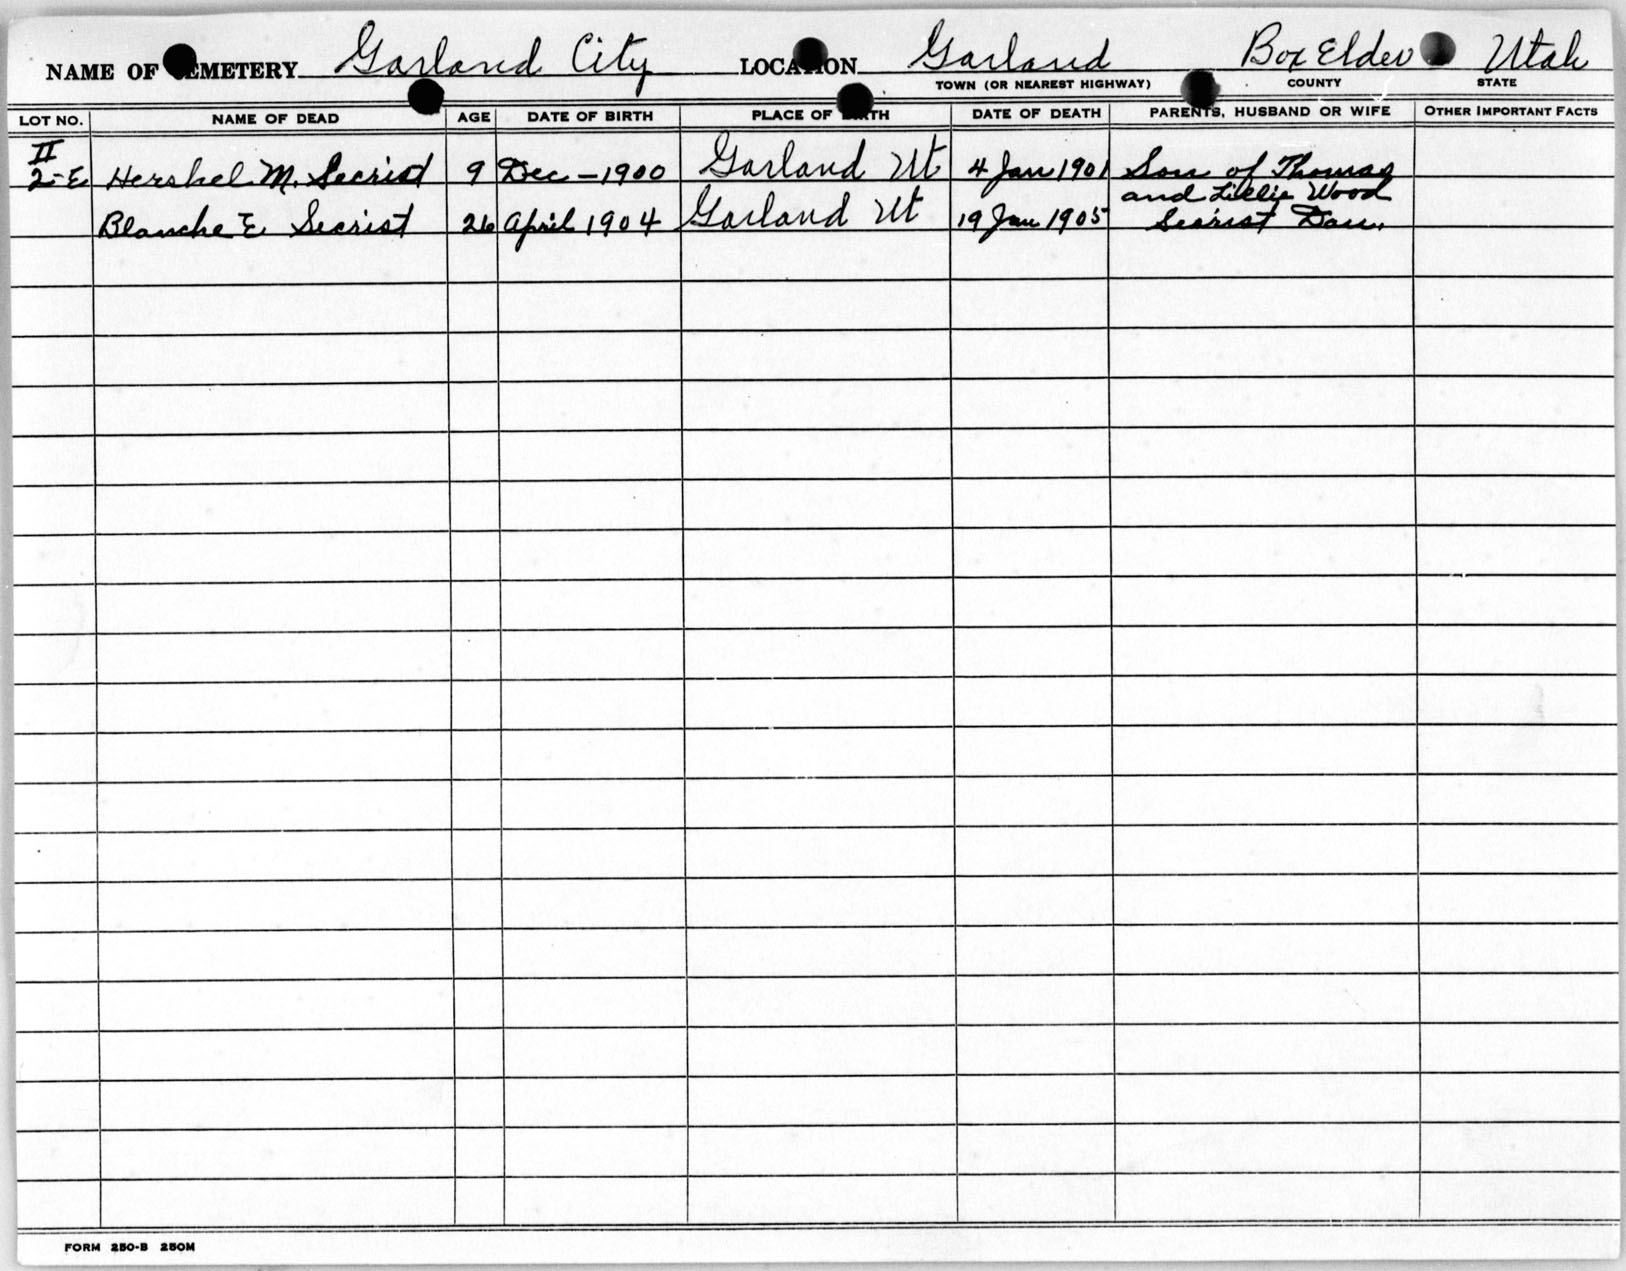 NAME OF CEMETERY Garland City LOCATION Garland Box Elder Utah
TOWN (OR NEAREST HIGHWAY) COUNTY STATE
LOT NO. NAME OF DEAD AGE DATE OF BIRTH PLACE OF BIRTH DATE OF DEATH PARENTS, HUSBAND OR WIFE OTHER IMPORTANT FACTS
II
2-E Hershel M. Secrist 9 Dec - 1900 Garland Ut 4 Jan 1901 Son of Thomas
and Lillie Wood
Blanche E Secrist 26 April 1904 Garland Ut 19 Jan 1905 Secrist Dau.
FORM 250-B 250M